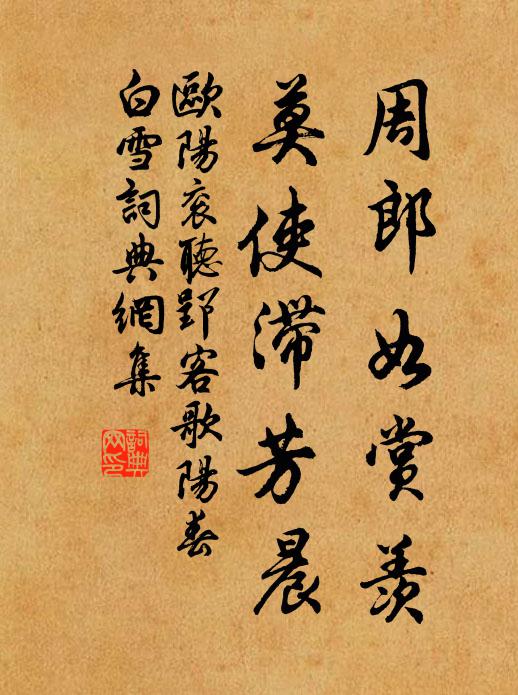 周郎如賞羨
莫使滯芳晨
歐陽衮聽郢客歌陽春
白雪詞典網集
詞典網印